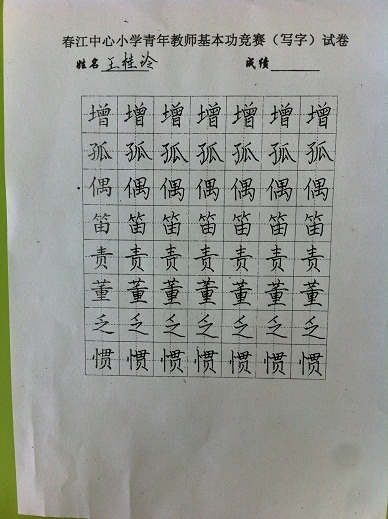 春江中心小学青年教师基本功竞赛（写字）试卷
姓名 王桂冷 成绩
增增增增增增增
孤孤孤孤孤孤孤
偶偶偶偶偶偶偶
笛笛笛笛笛笛笛
责责责责责责责
董董董董董董董
乏乏乏乏乏乏乏
惯惯惯惯惯惯惯